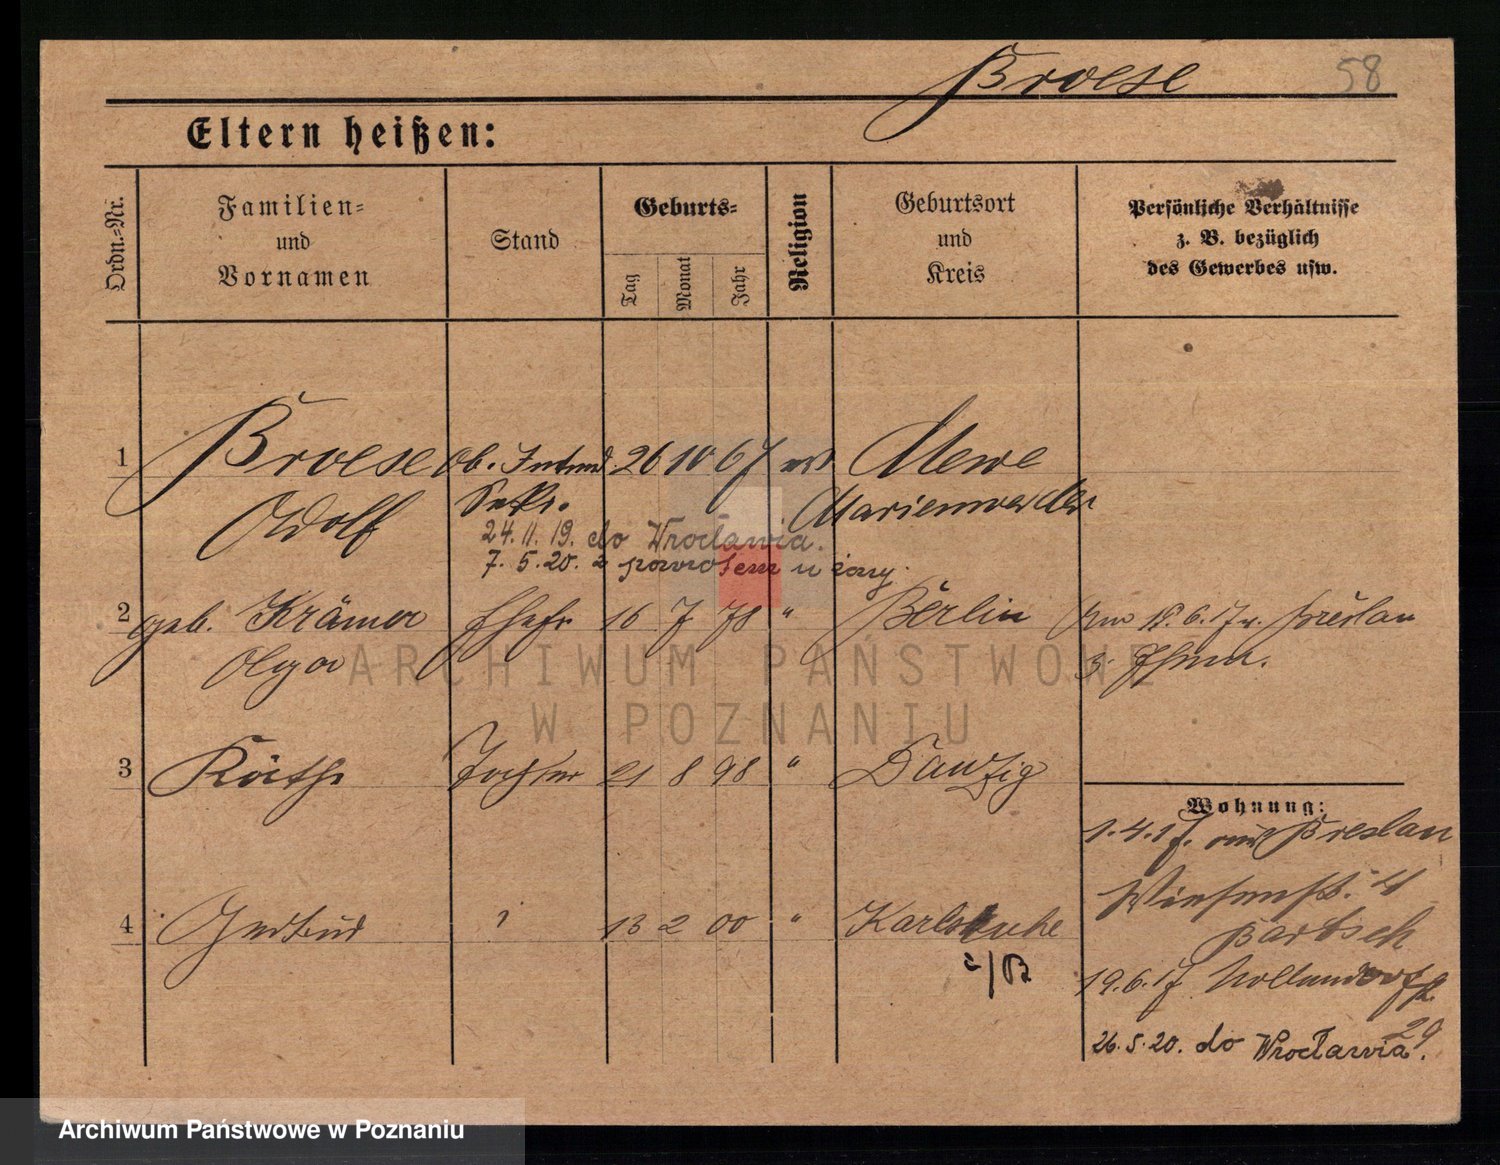 Broese 58
Eltern heißen:
Ordn.-Nr.
Familien-
und
Vornamen
Stand
Geburts-
Tag
Monat
Jahr
Religion
Geburtsort
und
Kreis
Persönliche Verhältnisse
z. B. bezüglich
des Gewerbes usw.
1 Broese Ob. Intend. 26 10 67 Mewe
Adolf Sekr. Marienwerder
24.11.19. do Wrocławia.
7.5.20. z powrotem u żony.
2 geb. Krämer Ehefr. 16 7 78 " Berlin
Olga
Breslau
z. Ehem.
3 Käthe Tochter 21 8 98 " Danzig
4 Gertrud 13 2 00 " Karlsruhe
i/B
Wohnung:
1.4.17. aus Breslau
Wiesenstr. 4
Bartsch
19.6.17
29
26.5.20. do Wrocławia.
ARCHIWUM PAŃSTWOWE
W POZNANIU
Archiwum Państwowe w Poznaniu